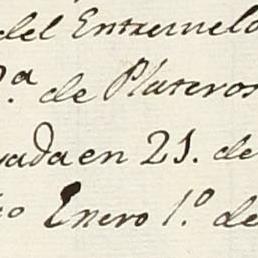 del Entremeło
ª. de Plateros
vada en 21. de
Enero 1.º de